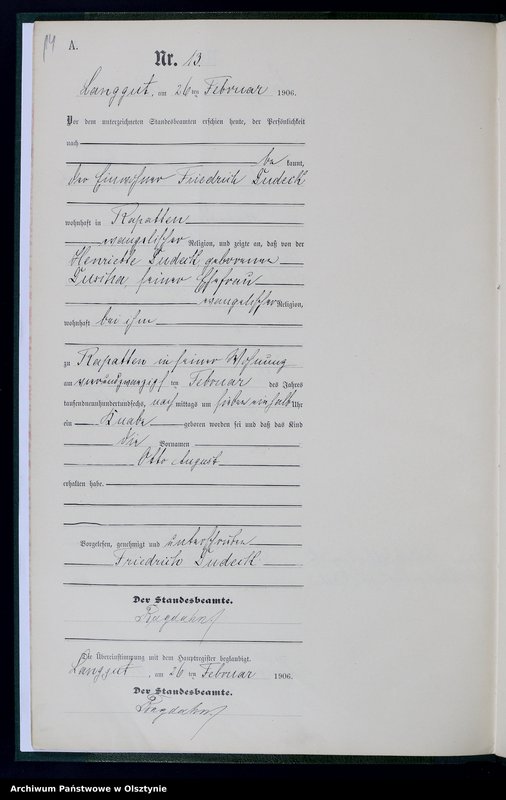 14
A.
Nr. 13.
Langgut, am 26ten Februar 1906.
Vor dem unterzeichneten Standesbeamten erschien heute, der Persönlichkeit
nach
be kannt,
der Einwohner Friedrich Dudeck
wohnhaft in Rapatten
evangelischer Religion, und zeigte an, daß von der
Henriette Dudeck geborenen
seiner Ehefrau
evangelischer Religion,
wohnhaft bei ihm
zu Rapatten in seiner Wohnung
am vierundzwanzigsten Februar des Jahres
tausendneunhundertundsechs, nachmittags um sieben einhalb Uhr
ein Knabe geboren worden sei und daß das Kind
die Vornamen
Otto August
erhalten habe.
Vorgelesen, genehmigt und unterschrieben
Friedrich Dudeck
Der Standesbeamte.
Die Übereinstimmung mit dem Hauptregister beglaubigt.
Langgut, am 26 ten Februar 1906.
Der Standesbeamte.
Archiwum Państwowe w Olsztynie